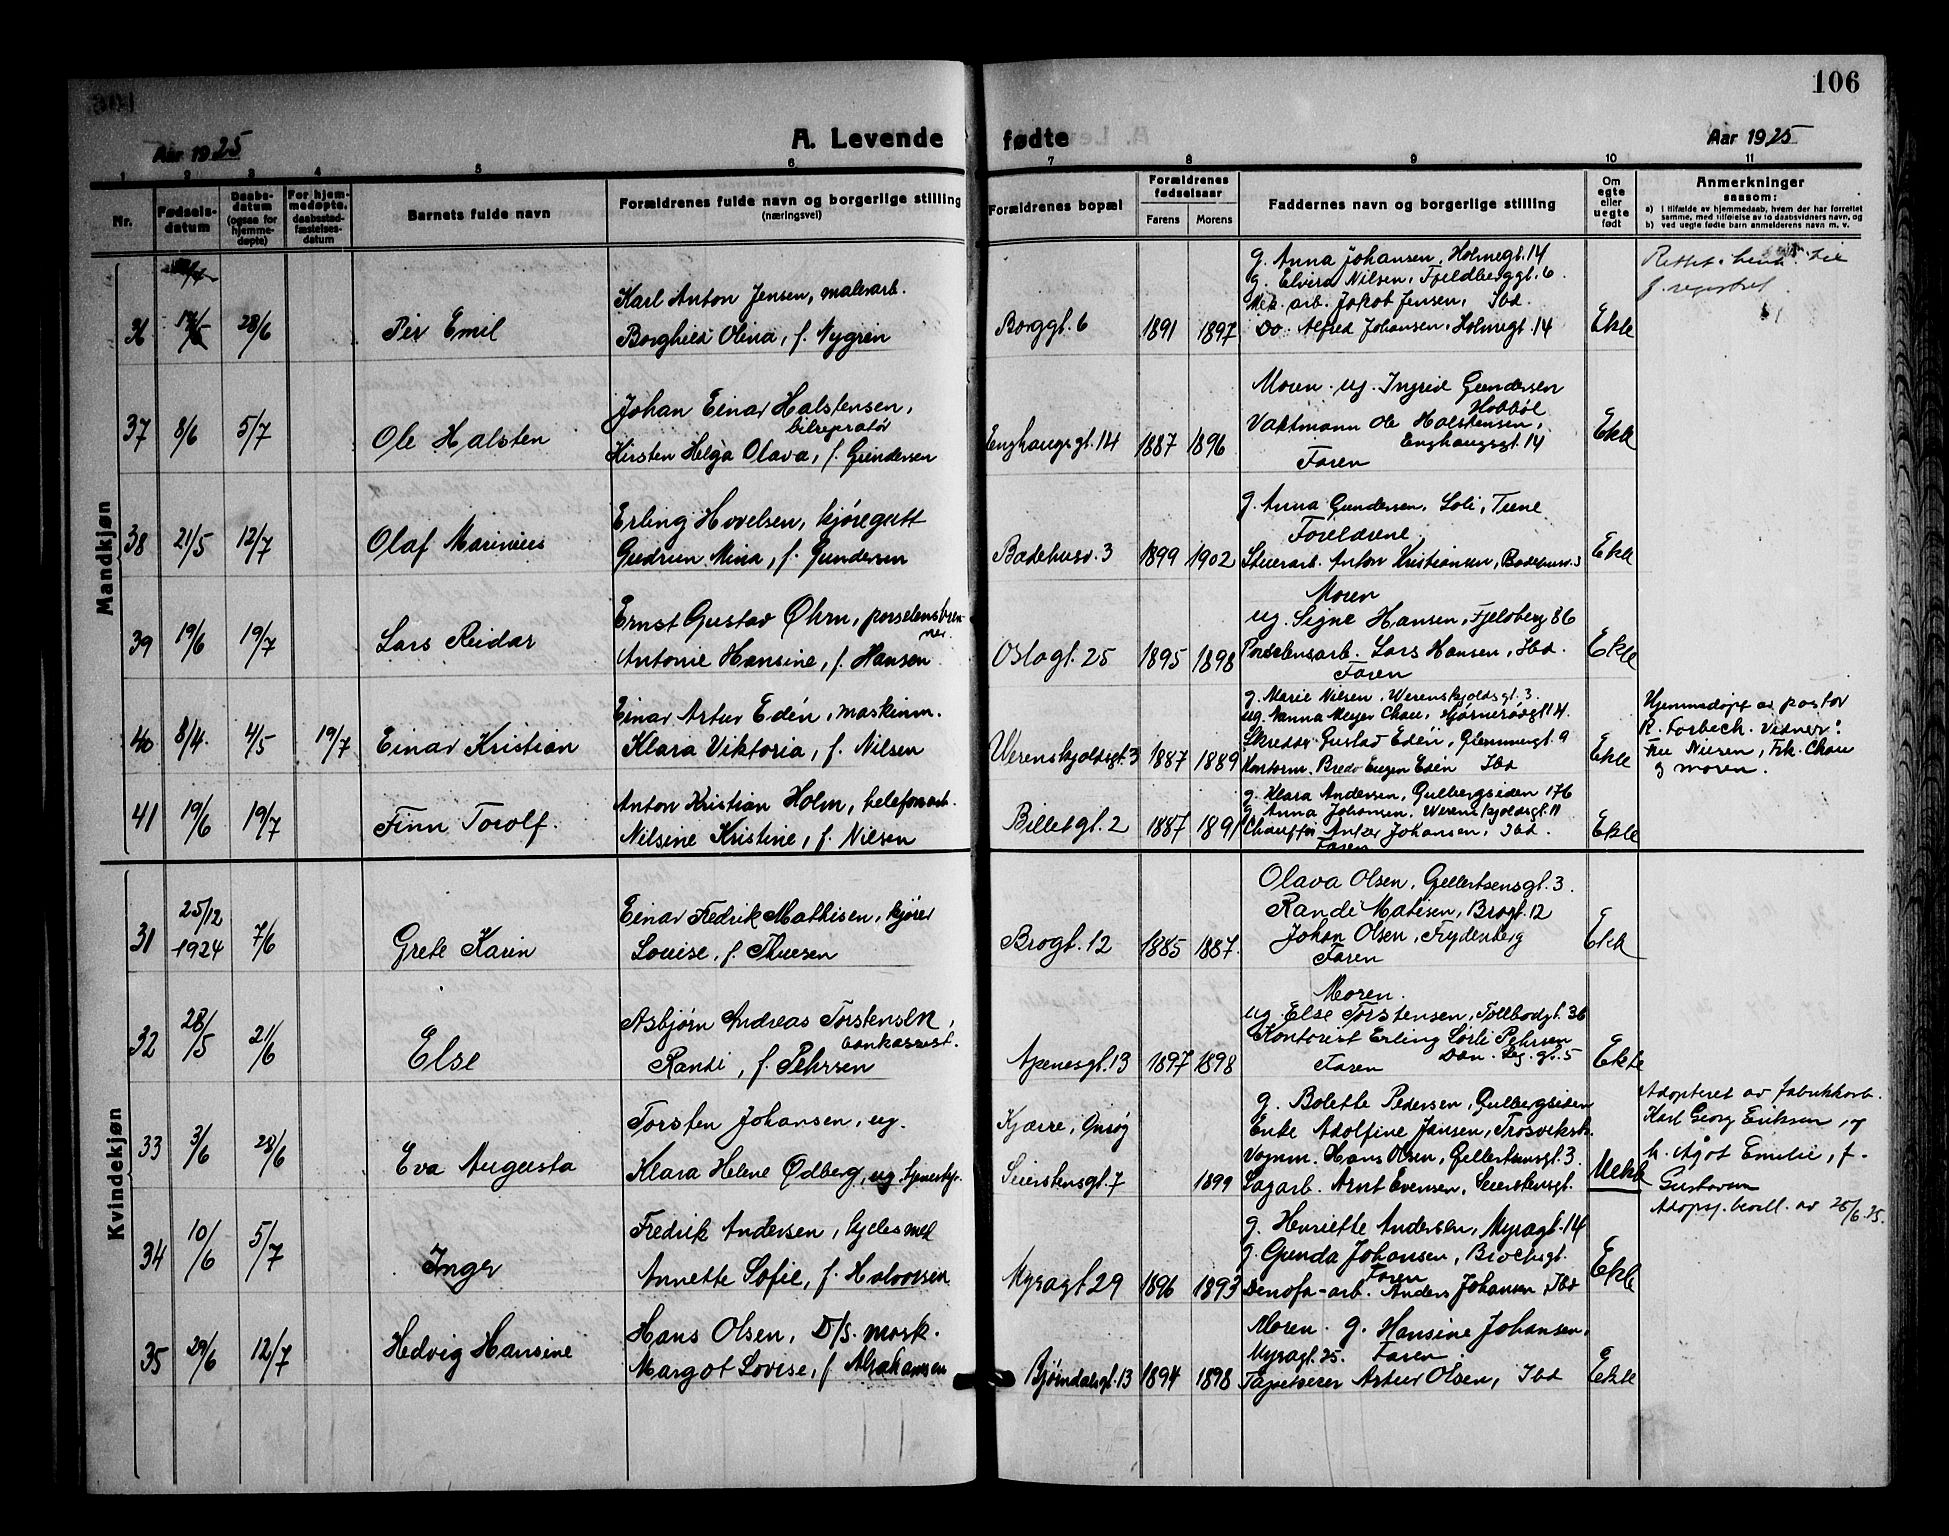 106
A. Levende fødte
Aar 1925
Aar 1925
1 2 3 4 5 6 7 8 9 10 11
Nr.
Fødsels-
datum
Daabs-
datum
(ogsaa for
hjemme-
døpte)
For hjem-
medøpte.
daabsstad-
fæstelses-
datum
Barnets fulde navn
Forældrenes fulde navn og borgerlige stilling
(næringsvei)
Forældrenes bopæl
Forældrenes
fødselsaar
Farens Morens
Faddernes navn og borgerlige stilling
Om
egte
eller
uegte
født
Anmerkninger
saasom:
a) i tilfælde av hjemmedaab, hvem der har forrettet
samme, med tilføielse av to daabsvidners navn, og
b) ved uegte fødte barn anmelderens navn m. v.
Mandkjøn
36 28/6 Per Emil
Karl Anton Jensen, malerarb.
Borghild Olina, f. Nygren
Borggt. 6 1891 1897
g. Anna Johansen, Holmegt. 14
g. Elvira Nilsen, Fjeldberggt. 6
Mek. arb. Jakob Jensen, Ibd.
Do. Alfred Johansen, Holmegt. 14
Ekte
37 8/6 5/7 Ole Halsten
Johan Einar Halstensen,
bilreparatør
Kirsten Helga Olava, f. Gundersen
Enghaugsgt. 14 1887 1896
Moren. ug. Ingrid Gundersen
Hobbøl
Vaktmann Ole Halstensen,
Enghaugsgt. 14
Faren
Ekte
38 21/5 12/7 Olaf Marinius
Erling Hovelsen, kjøregutt
Gudrun Mina, f. Gundersen
Badehusv. 3 1899 1902
g. Anna Gundersen, Soli, Tune
Foreldrene
Stuerarb. Anton Kristiansen, Badehusv. 3
Ekte
39 19/6 19/7 Lars Reidar
Ernst Gustav Øhrn, porselensbren-
ner.
Antonie Hansine, f. Hansen
Oslogt. 25 1895 1898
Moren
ug. Signe Hansen, Fjeldberg 86
Porselensarb. Lars Hansen, Ibd.
Faren
Ekte
40 8/4. 4/5 19/7 Einar Kristian
Einar Artur Edén, maskinm.
Klara Viktoria, f. Nilsen
Werenskjoldsgt. 3 1887 1889
g. Marie Nilsen, Werenskjoldsgt. 3.
ug. Nanna Meyer Chau,
Skredder Gustav Edén, Glemmengt. 9
Kontorm. Bredo Eugen Edén Ibd
Ekte
Hjemmedøpt av pastor
R. Forbech. Vidner:
Fru Nilsen, Frk. Chau
og moren.
41 19/6 19/7 Finn Torolf.
Anton Kristian Holm, telefonarb.
Nilsine Kristine, f. Nilsen
Billetgt. 2 1887 1891
g. Klara Andersen, Gulbergsiden 176
g. Anna Johansen, Werenskjoldsgt. 11
Chauffør Anker Johansen, Ibd.
Faren
Ekte
Kvindekjøn
31 25/12
1924 7/6 Grete Karin
Einar Fredrik Mathisen, kjører
Louise, f. Thuesen
Brogt. 12 1885 1887.
Olava Olsen, Gellertsensgt. 3.
Randi Matisen, Brogt. 12
Johan Olsen, Frydenberg
Faren
Ekte
32 28/5 21/6 Else
Asbjørn Andreas Torstensen,
bankassist.
Randi, f. Pehrsen
Apenesgt. 13 1897 1898
Moren.
ug. Else Torstensen, Tollbodgt. 36
Kontorist Erling Sørli Pehrsen
Dan. Leg. gt. 5
Faren
Ekte
33 3/6 28/6 Eva Augusta
Torsten Johansen, ug.
Klara Helene Ødberg, ug.
Kjærre, Onsøy
Seierstensgt. 7 1899
g. Bolette Pedersen, Gulbergsiden
Enke Adolfine Jansen, Trosvikstr.
Vognm. Hans Olsen, Gellertsensgt. 3.
Sagarb. Arnt Evensen, Seierstensgt.
Uekte
Adopteret av fabrikkarb.
Karl Georg Eriksen, og
h. Ågot Emilie, f.
Gustavsen
Adopsj. bevill. av 26/6 25.
34 10/6 5/7 Inger
Fredrik Andersen, kjelesmed
Annette Sofie, f. Halvorsen
Myragt. 29 1896 1893
g. Henriette Andersen, Myragt. 14
g. Gunda Johansen, Brochsgt.
Faren
Denofa-arb. Anders Johansen, Ibd
Ekte
35 29/6 12/7 Hedvig Hansine
Hans Olsen, D/S. mask.
Margot Lovise, f. Abrahamsen
Bjørndalsgt. 13 1894 1898
Moren. g. Hansine Johansen,
Myragt. 25. Faren.
Tapetserer Artur Olsen, Ibd
Ekte